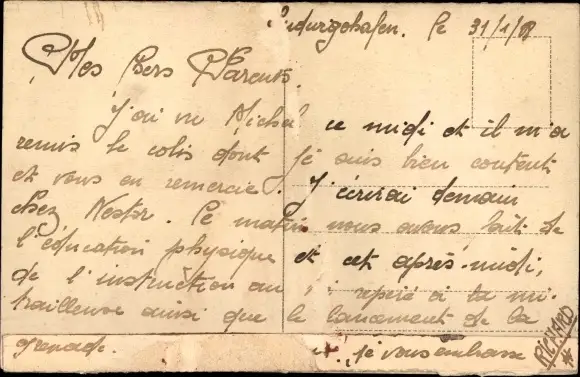 Ludwigshafen. le 31/1/
Mes chers Parents.
J'ai vu Michel ce midi et il m'a
remis le colis dont je suis bien content
et vous en remercie. J'écrirai demain
chez Nestor. Ce matin nous avons fait de
l'éducation physique et cet après-midi,
de l'instruction au repéré à la mi-
trailleuse ainsi que le lancement de la
grenade. je vous embrasse
RICHARD